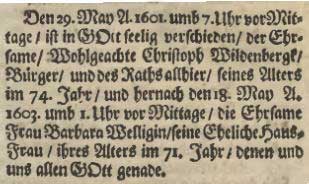 Den 29. May A. 1601. umb 7. Uhr vor Mit-
tage / ist in GOtt seelig verschieden / der Ehr-
same / Wohlgeachte Christoph Wildenbergk /
Bürger / und des Raths allhier / seines Alters
im 74. Jahr / und hernach den 18. May A.
1603. umb 1. Uhr vor Mittage / die Ehrsame
Frau Barbara Welligin / seine Eheliche Haus-
Frau / ihres Alters im 71. Jahr / denen und
uns allen GOtt genade.